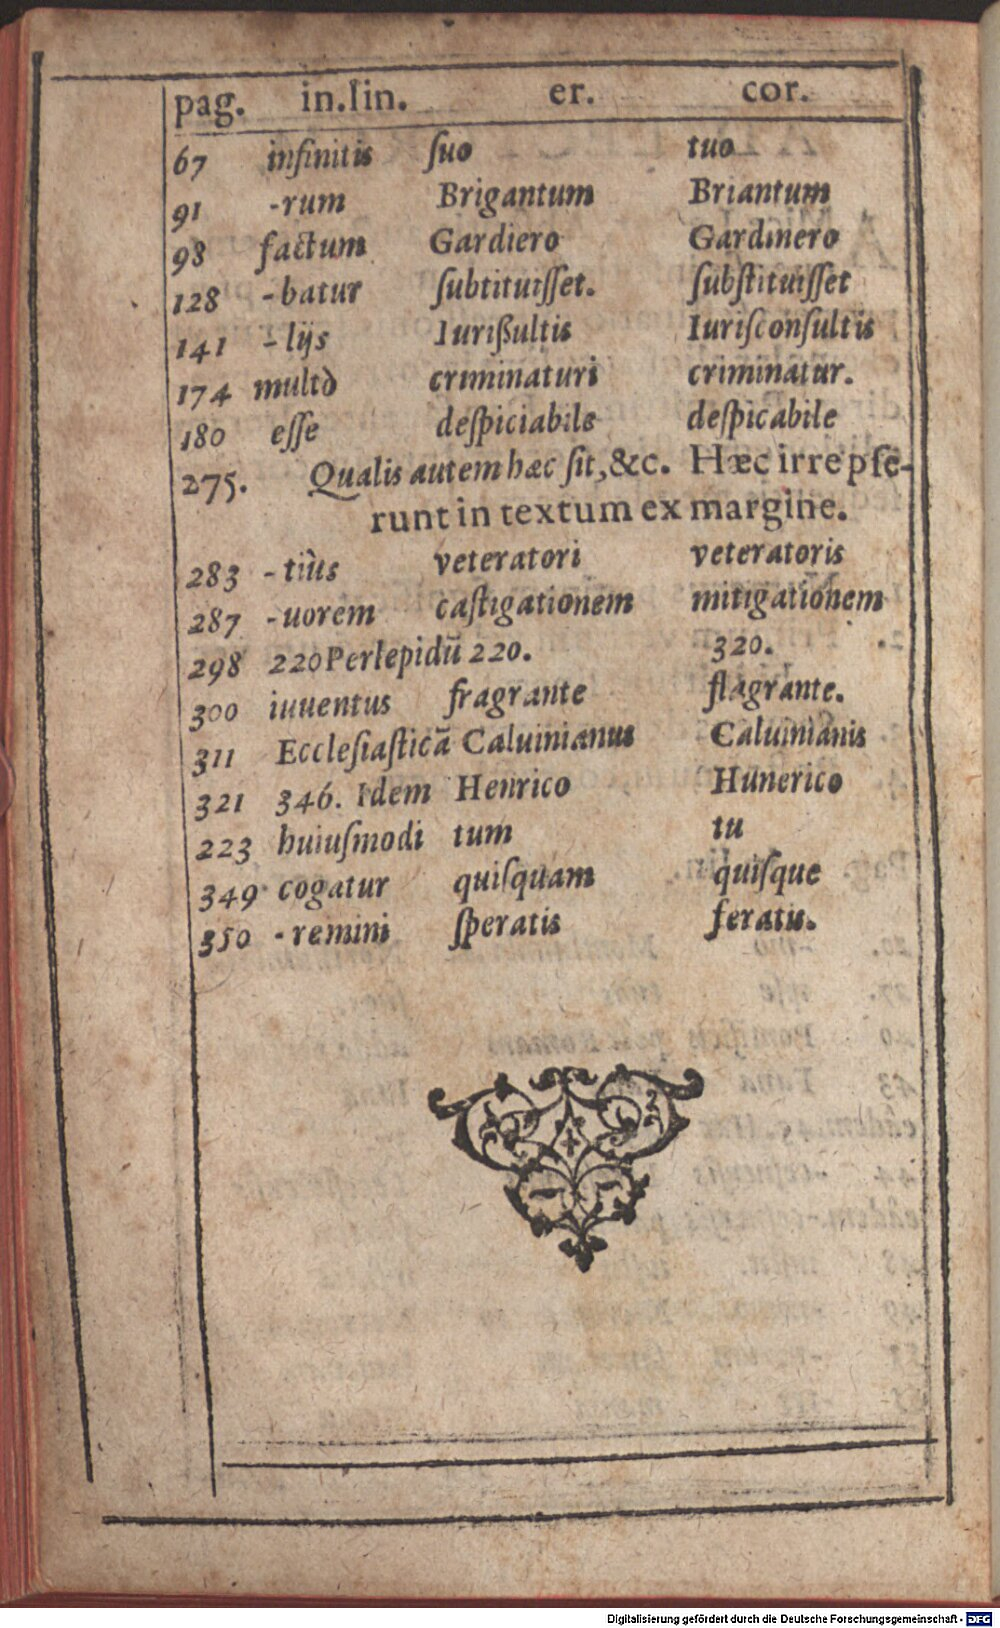 pag. in.lin. er. cor.
67 infinitis ſuo tuo
91 -rum Brigantum Briantum
98 factum Gardiero Gardinero
128 -batur ſubtituiſſet. ſubſtituiſſet
141 -lijs Iurißultis Iuriſconſultis
174 multò criminaturi criminatur.
180 eſſe deſpiciabile deſpicabile
275. Qualis autem hæc ſit, &c. Hæc irrepſe-
runt in textum ex margine.
283 -tiùs veteratori veteratoris
287 -uorem caſtigationem mitigationem
298 220 Perlepidũ 220. 320.
300 iuuentus fragrante flagrante.
311 Eccleſiaſticã Caluinianus Caluinianis
321 346. Idem Henrico Hunerico
223 huiuſmodi tum tu
349 cogatur quiſquam quiſque
350 -remini ſperatis feratis.
Digitalisierung gefördert durch die Deutsche Forschungsgemeinschaft - DFG